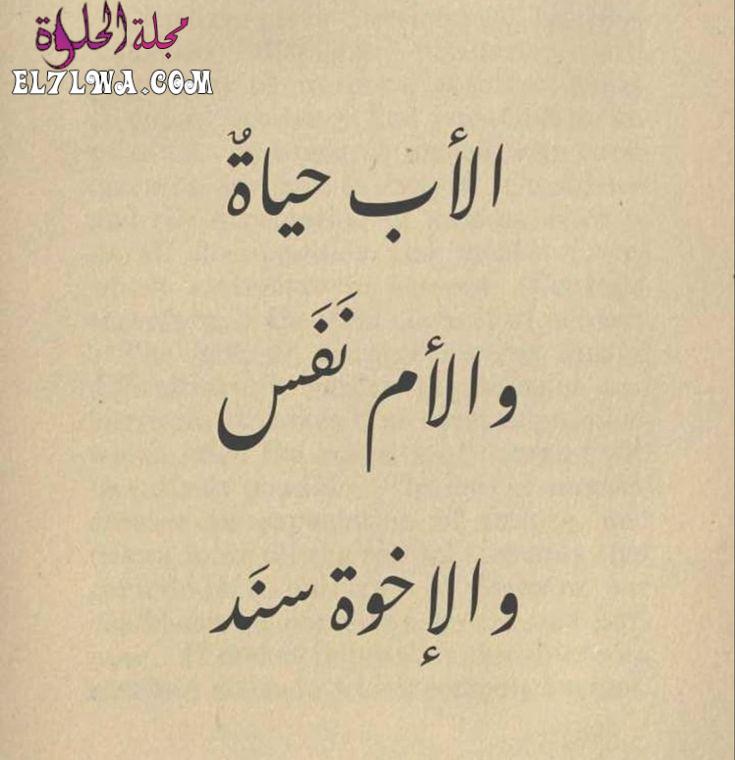 مجلة الحلوة
EL7LWA.COM
الأب حياةٌ
والأم نَفَس
والإخوة سنَد